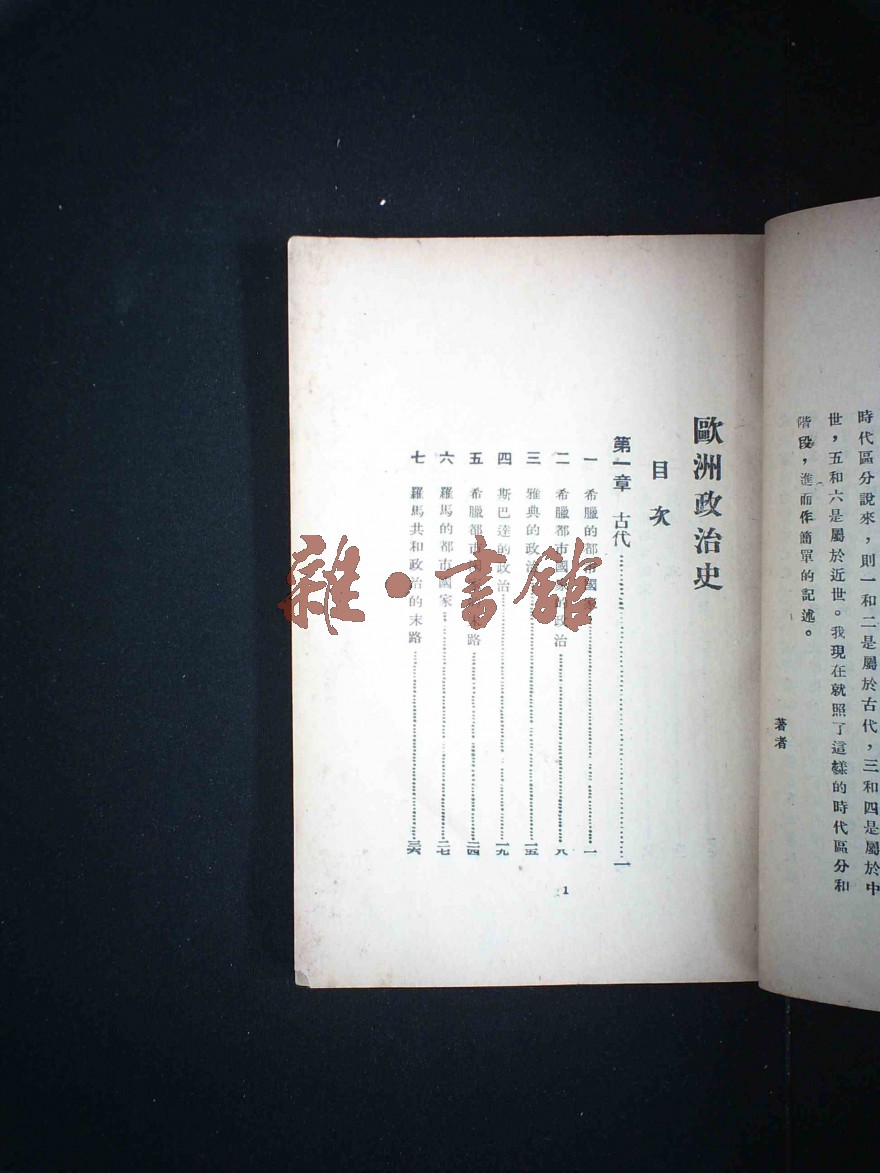 時代區分說來，則一和二是屬於古代，三和四是屬於中
世，五和六是屬於近世。我現在就照了這樣的時代區分和
階段，進而作簡單的記述。
著者
歐洲政治史
目次
第一章 古代……一
一 希臘的都市國家……一
二 希臘都市國家的政治……八
三 雅典的政治……一五
四 斯巴達的政治……一九
五 希臘都市國家的末路……二四
六 羅馬的都市國家……二七
七 羅馬共和政治的末路……三六
1
雜·書館